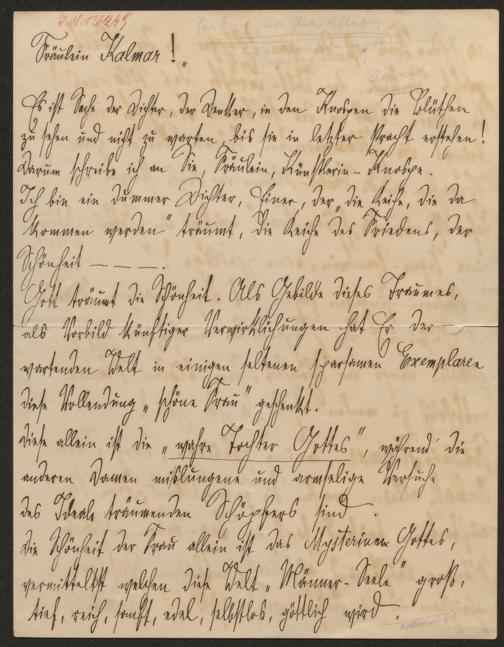 J.N. 136949
Fräulein Kalmar!
Es ist Sache der Dichter, der Denker, in den Knospen die Blüthen
zu sehen und nicht zu warten, bis sie in letzter Pracht erstehen!
Darum schreibe ich an Sie, Fräulein, Künstlerin-Knospe.
Ich bin ein dummer Dichter, Einer, der „die Reiche, die da
kommen werden" träumt, die Reiche des Friedens, der
Schönheit — — —.
Gott träumt die Schönheit. Als Gebilde dieses Traumes,
als Vorbild künftiger Verwirklichungen hat Er der
wartenden Welt in einigen seltenen sparsamen Exemplaren
diese Vollendung „schöne Frau" geschenkt.
Diese allein ist die „wahre Tochter Gottes", während die
anderen Damen mislungene und armselige Versuche
des Ideale träumenden Schöpfers sind.
Die Schönheit der Frau allein ist das Mysterium Gottes,
vermittelst welchen diese Welt „Männer-Seele" groß,
tief, reich, sanft, edel, selbstlos, göttlich wird.